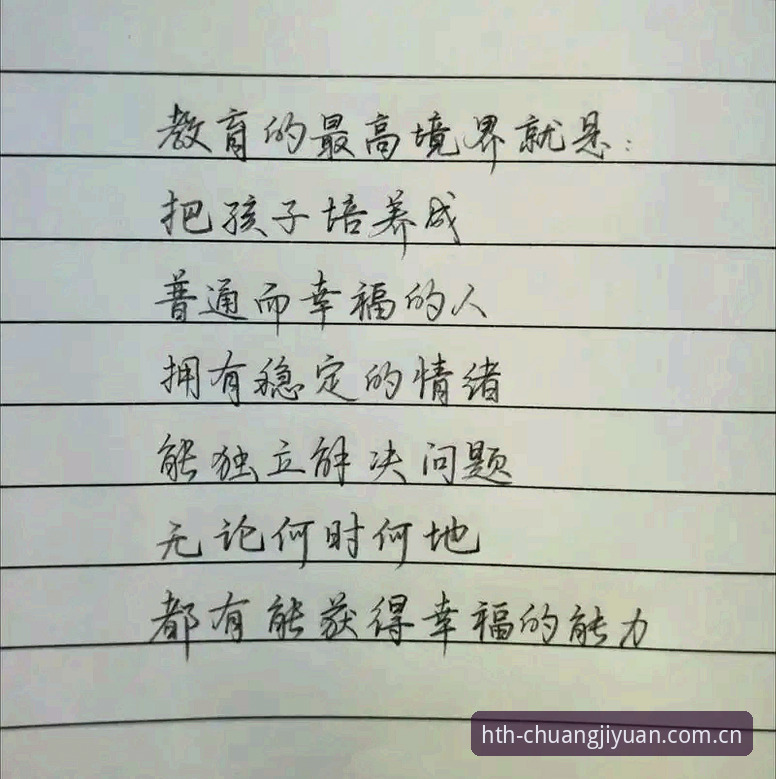 教育的最高境界就是：
把孩子培养成
普通而幸福的人
拥有稳定的情绪
能独立解决问题
无论何时何地
都有能获得幸福的能力
hth-chuangjiyuan.com.cn